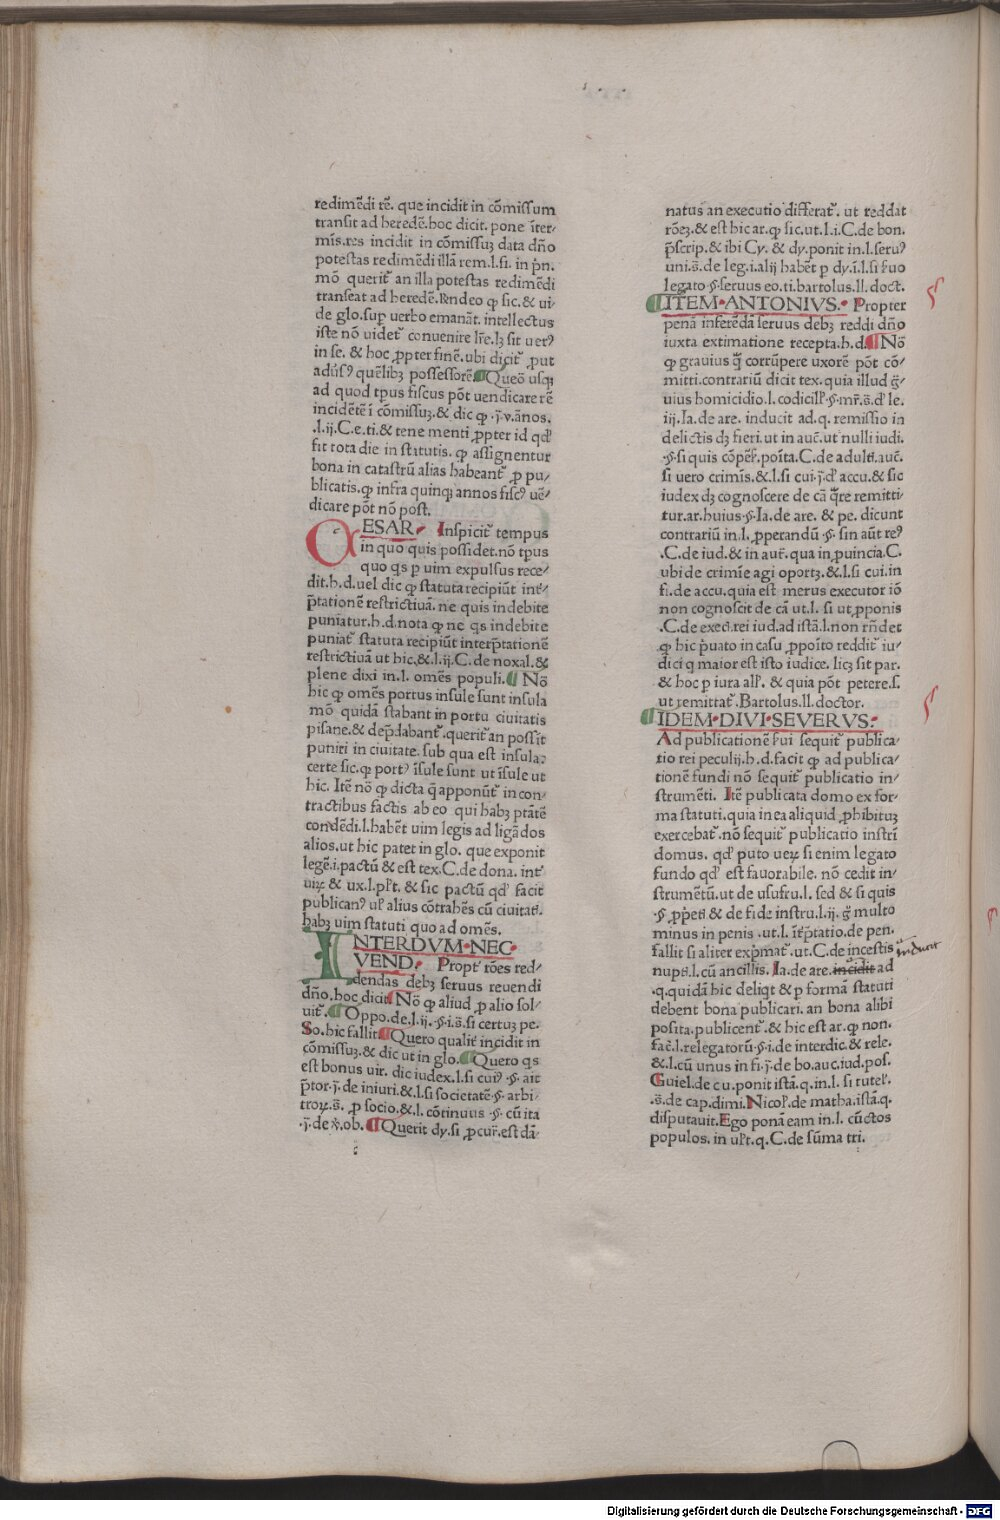 redimēdi rē. que incidit in cōmissum
transit ad heredē.hoc dicit. pone iter-
mis.res incidit in cōmissuꝫ data dn̄o
potestas redimēdi illā rem.l.si. in pn̄.
mō querit᷑ an illa potestas redimēdi
transeat ad heredē. Rn̄deo ꝙ sic.& ui-
de glo.sup uerbo emanāt. intellectus
iste nō uidet᷑ conuenire lr̄e.lꝫ sit uerꝰ
in se. & hoc ꝓpter finē.ubi dicit᷑ ꝓut
adūsꝰ quēlibꝫ possessorē. Queō usqꝫ
ad quod tp̄us fiscus pōt uendicare rē
incidētē ī cōmissuꝫ.& dic ꝙ .ꝟ.v.ānos.
.l.ij.C.e.ti.& tene menti ꝓpter id qd̓
fit tota die in statutis. ꝙ assignentur
bona in catastrū alias habeant᷑ ꝓ pu-
blicatis.ꝙ infra quinqꝫ annos fiscꝰ uē-
dicare pōt nō post.
CESAR. Inspicit᷑ tempus
in quo quis possidet.nō tp̄us
quo qs p uim expulsus rece-
dit.h.d.uel dic ꝙ statuta recipiūt int᷑-
p̄tationē restrictiuā. ne quis indebite
puniatur.h.d.nota ꝙ ne qs indebite
puniat᷑ statura recipiūt interp̄tationē
restrictiuā ut hic.&.l.ij.C.de noxal.&
plene dixi in.l. omēs populi. Nō
hic ꝙ omēs portus insule sunt insula
mō quidā stabant in portu ciuitatis
pisane.& dep̄dabant᷑.querit᷑ an possit
puniri in ciuitate. sub qua est insula:
certe sic.ꝙ portꝰ īsule sunt ut īsule ut
hic. Itē nō ꝙ dicta q̄ apponūt᷑ in con-
tractibus factis ab eo qui habꝫ p̄tātē
condēdi.l.habēt uim legis ad ligādos
alios.ut hic patet in glo. que exponit
legē.i.pactū & est tex.C.de dona. int᷑
uiꝝ & ux.l.pl̓t. & sic pactū qd̓ facit
publicanꝰ ul̓ alius cōtrahēs cū ciuitati.
habꝫ uim statuti quo ad omēs.
INTERDVM NEC
VEND. Propt᷑ rōes red-
dendas debꝫ seruus reuendi
dn̄o.hoc dicit Nō ꝙ aliud ꝓ alio sol-
uit᷑. Oppo.de.l.ij. §.i.s̄.si certuꝫ pe.
So.hic fallit Quero qualit᷑ incidit in
cōmissuꝫ.& dic ut in glo. Quero qs
est bonus uir. dic iudex.l.si cuiꝰ §. ait
p̄tor.j̄.de iniuri.&.l.si societatē §. arbi-
troꝝ.s̄. ꝓ socio.&.l. cōtinuus §. cū ita
.j̄.de ꝟ.ob. Querit dy.si ꝓcur̄.est dā-
natus an executio differat᷑. ut reddat
rōeꝫ.& est hic ar.ꝙ sic.ut.l.i.C.de bon.
p̄scrip.& ibi Cy. & dy.ponit in.l.seruꝰ
uni.s̄.de leg.i.alij habēt p dy.ī.l.si ẜuo
legato §.seruus eo.ti.bartolus.ll.doct.
ITEM ANTONIVS. Propter
penā inferēdā seruus debꝫ reddi dn̄o
iuxta extimatione recepta.h.d. Nō
ꝙ grauius q̄ corrūpere uxorē pōt cō-
mitti.contrariū dicit tex.quia illud g̅-
uius homicidio.l.codicill̓ §.mr̄.s̄.d̓ le.
iij.Ia.de are. inducit ad.q. remissio in
delictis dꝫ fieri.ut in auc̄.ut nulli iudi.
.§.si quis cōpet̓.poīta.C.de adulti.auc̄.
si uero crimīs.&.l.si cui.j̄.d̓ accu.& sic
iudex dꝫ cognoscere de cā q̄re remitti-
tur.ar.huius §.Ia.de are. & pe. dicunt
contrariū in.l. ꝓperandū §. sin aūt reꝰ
.C.de iud.& in aut̄.qua in ꝓuincia.C.
ubi de crimīe agi oportꝫ.&.l.si cui.in
fi.de accu.quia est merus executor iō
non cognoscit de cā ut.l. si ut ꝓponis
.C.de execū.rei iud.ad istā.l.non rn̄det
ꝙ hic p̄uato in casu ꝓpoīto reddit᷑ iu-
dici q maior est isto iudice. licꝫ sit par.
& hoc p iura all̓. & quia pōt petere.s.
ut remittat᷑.Bartolus.ll.doctor.
IDEM DIVI SEVERVS.
Ad publicationē ẜui sequit᷑ publica-
tio rei peculij.h.d.facit ꝙ ad publica-
tionē fundi nō sequit᷑ publicatio in-
strumēti. Itē publicata domo ex for-
ma statuti.quia in ea aliquid ꝓhibituꝫ
exercebat᷑.nō sequit᷑ publicatio instrī
domus. qd̓ puto ueꝝ si enim legato
fundo qd̓ est fauorabile. nō cedit in-
strumētū.ut de usufru.l. sed & si quis
§. ꝓp̄eti & de fide instru.l.ij. g̅ multo
minus in penis .ut.l. īt᷑p̄tatio de pen.
fallit si aliter exp̄mat᷑ .ut.C.de incestis
nupti.l.cū ancillis. Ia.de are.incidit ad
inducit
.q.quidā hic deliqt & p formā statuti
debent bona publicari. an bona alibi
posita.publicent᷑.& hic est ar.ꝙ non.
fac̄.l.relegatorū §.i.de interdic.& rele.
&.l.cū unus in fi.j̄.de bo.auc.iud.pos.
Guiel.de cu.ponit istā.q.in.l. si rutel̓.
.s̄.de cap.dimi.Nicol̓.de matha.istā.q.
disputauit.Ego ponā eam in.l. cūctos
populos. in ul̓t.q.C.de sūma tri.
Digitalisierung gefördert durch die Deutsche Forschungsgemeinschaft - DFG